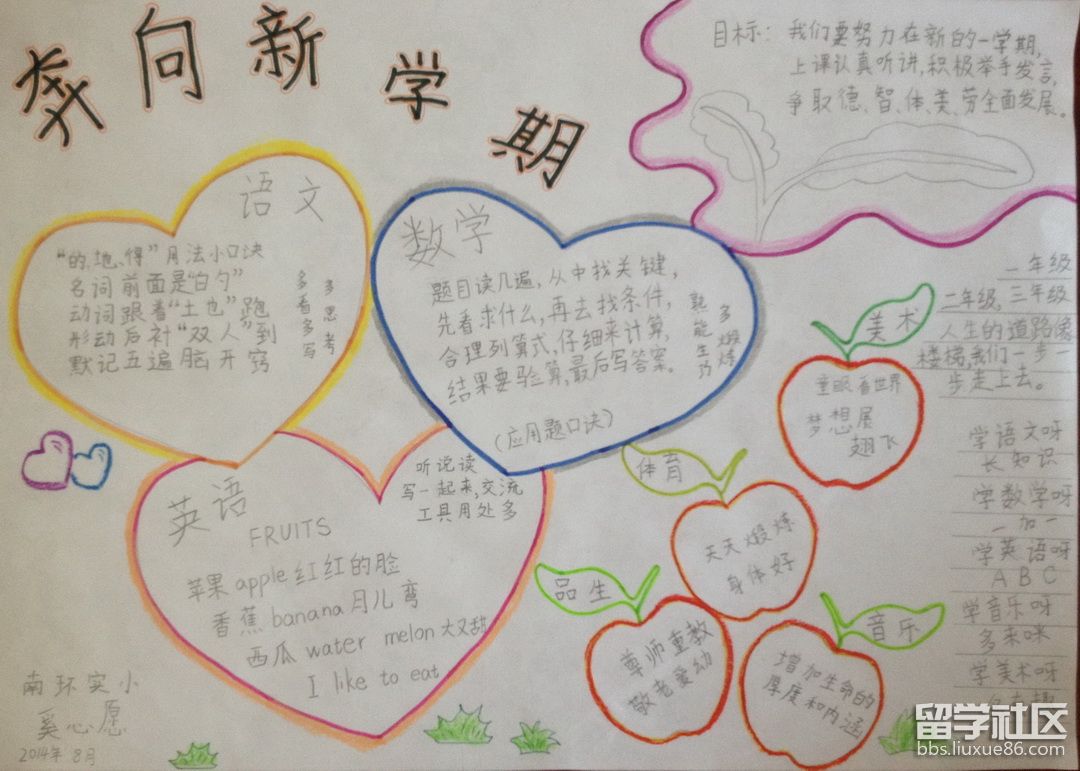 奔向新学期
目标：我们要努力在新的一学期，
上课认真听讲，积极举手发言，
争取德、智、体、美、劳全面发展。
语文
“的、地、得”用法小口诀
名词前面是“白勺”
动词跟着“土也”跑
形动后补“双人”到
默记五遍脑开窍
多看多写
多思考
数学
题目读几遍，从中找关键，
先看求什么，再去找条件，
合理列算式，仔细来计算，
结果要验算，最后写答案。
（应用题口诀）
熟能生巧
多锻炼
英语
FRUITS
听说读
写一起来，交流
工具用处多
苹果 apple 红红的脸
香蕉 banana 月儿弯
西瓜 water melon 大又甜
I like to eat
美术
童眼看世界
梦想展
翅飞
体育
天天锻炼
身体好
品生
尊师重教
敬老爱幼
音乐
增加生命的
厚度和内涵
一年级
二年级，三年级
人生的道路像
楼梯，我们一步一
步走上去。
学语文呀
长知识
学数学呀
一加一
学英语呀
A B C
学音乐呀
多来咪
学美术呀
南环实小
奚心愿
2014年8月
留学社区
bbs.liuxue86.com